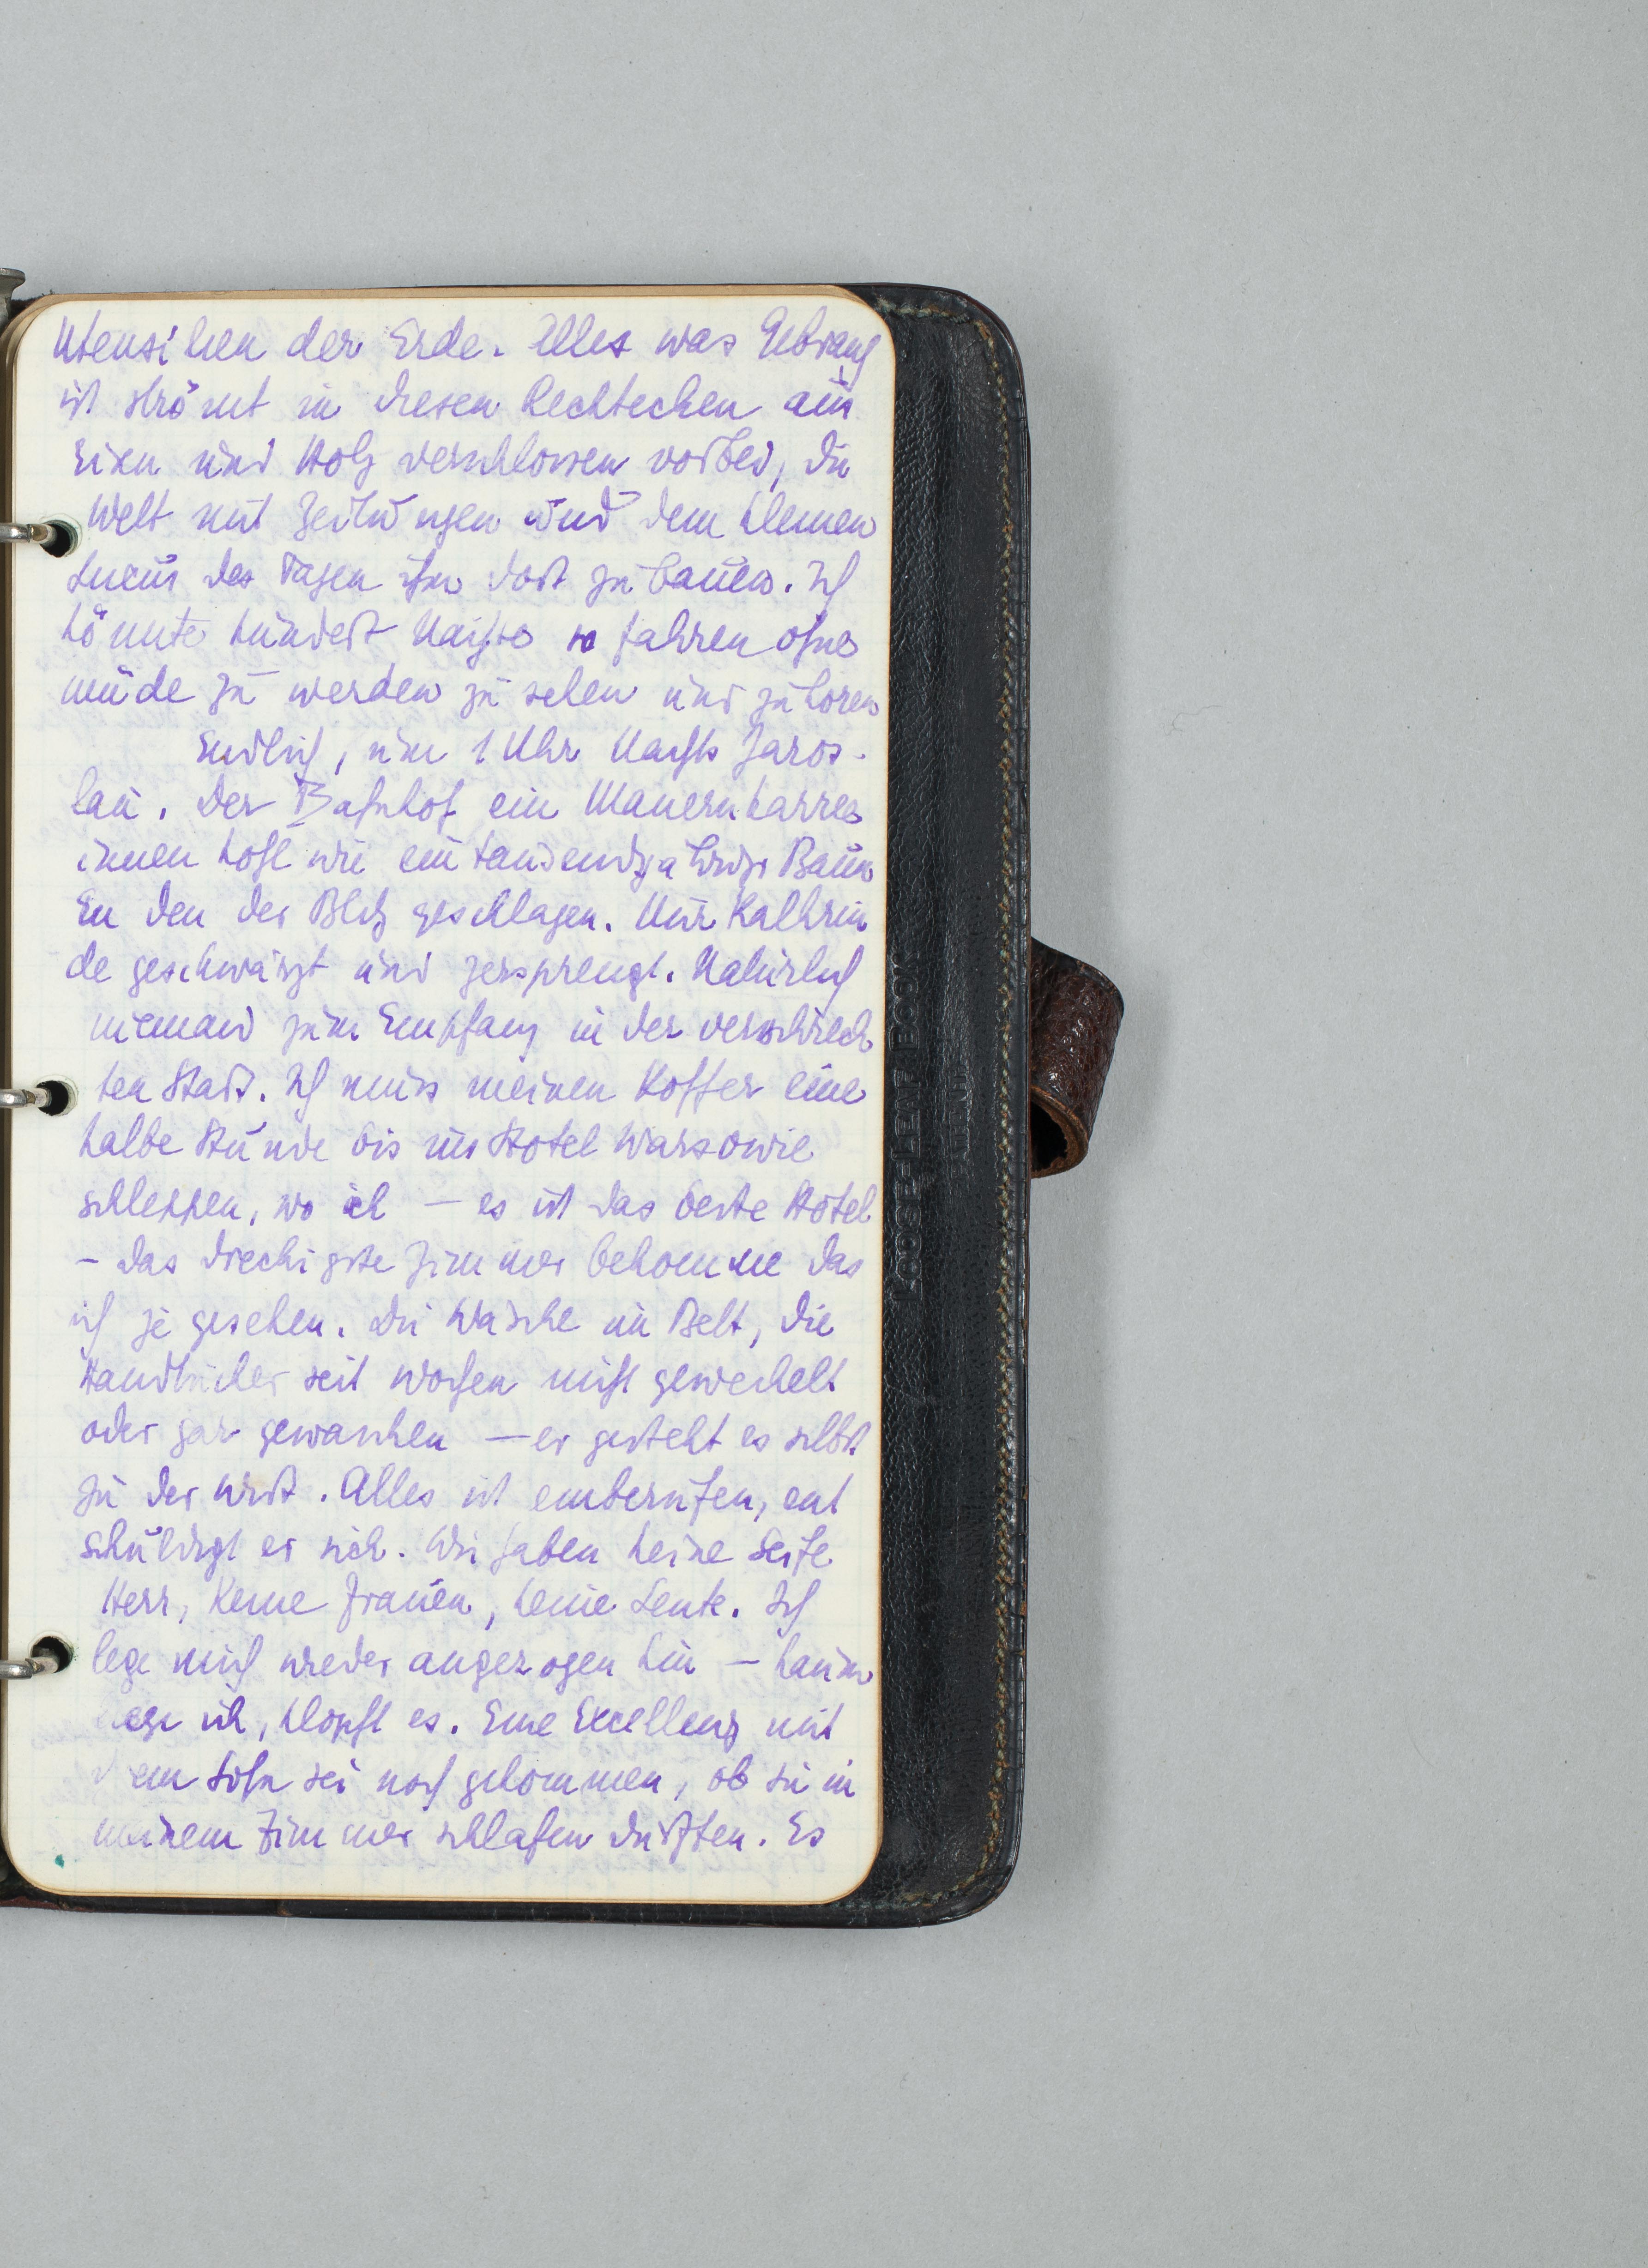 Utensilien der Erde. Alles was Gebrauch
ist strömt in diesen Rechtecken aus
Eisen und Holz verschlossen vorbei, die
Welt mit Zeitungen und dem kleinen
Luxus des Tages ihn dort zu bauen. Ich
könnte hundert Nächte so fahren ohne
müde zu werden zu sehen und zu hören
Endlich, um 1 Uhr Nachts Jaros-
lau. Der Bahnhof ein
innen hohl wie ein tausendjähriger Baum
in den der Blitz geschlagen. Nur
de geschwärzt und zersprengt. Natürlich
niemand zum Empfang in der verschreck
ten Stadt. Ich muss meinen Koffer eine
halbe Stunde bis ins Hotel Warsowie
schleppen, wo ich – es ist das beste Hotel
– das dreckigste Zimmer bekomme das
ich je gesehen. Die Wäsche im Bett, die
Handtücher seit Wochen nicht gewechselt
oder gar gewaschen – er gesteht es selbst
zu der Wirt. Alles ist einberufen, ent
schuldigt er sich. Wir haben keine Seife
Herr, keine Frauen, keine Leute. Ich
lege mich wieder angezogen hin – kaum
liege ich, klopft es. Eine Excellenz mit
dem Sohn sei noch gekommen, ob sie in
meinem Zimmer schlafen dürften. Es
LOOSE-LEAF BOOK